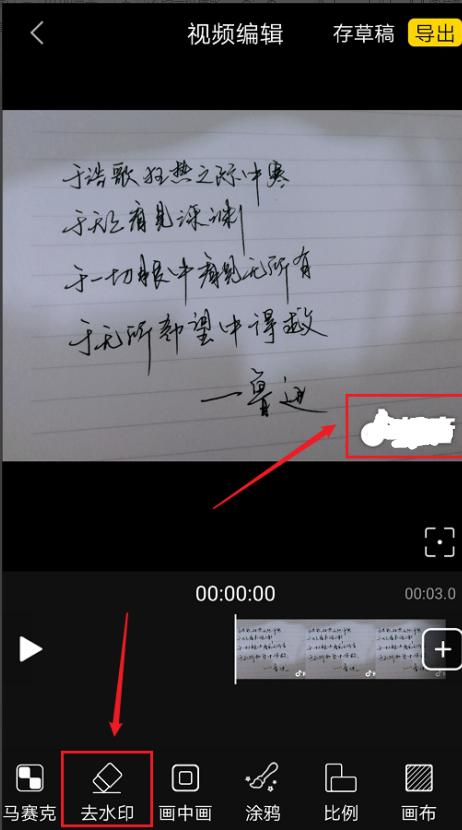 视频编辑
存草稿
导出
于浩歌狂热之际中寒
于天上看见深渊
于一切眼中看见无所有
于无所希望中得救
一鲁迅
00:00:00
00:03.0
马赛克
去水印
画中画
涂鸦
比例
画布